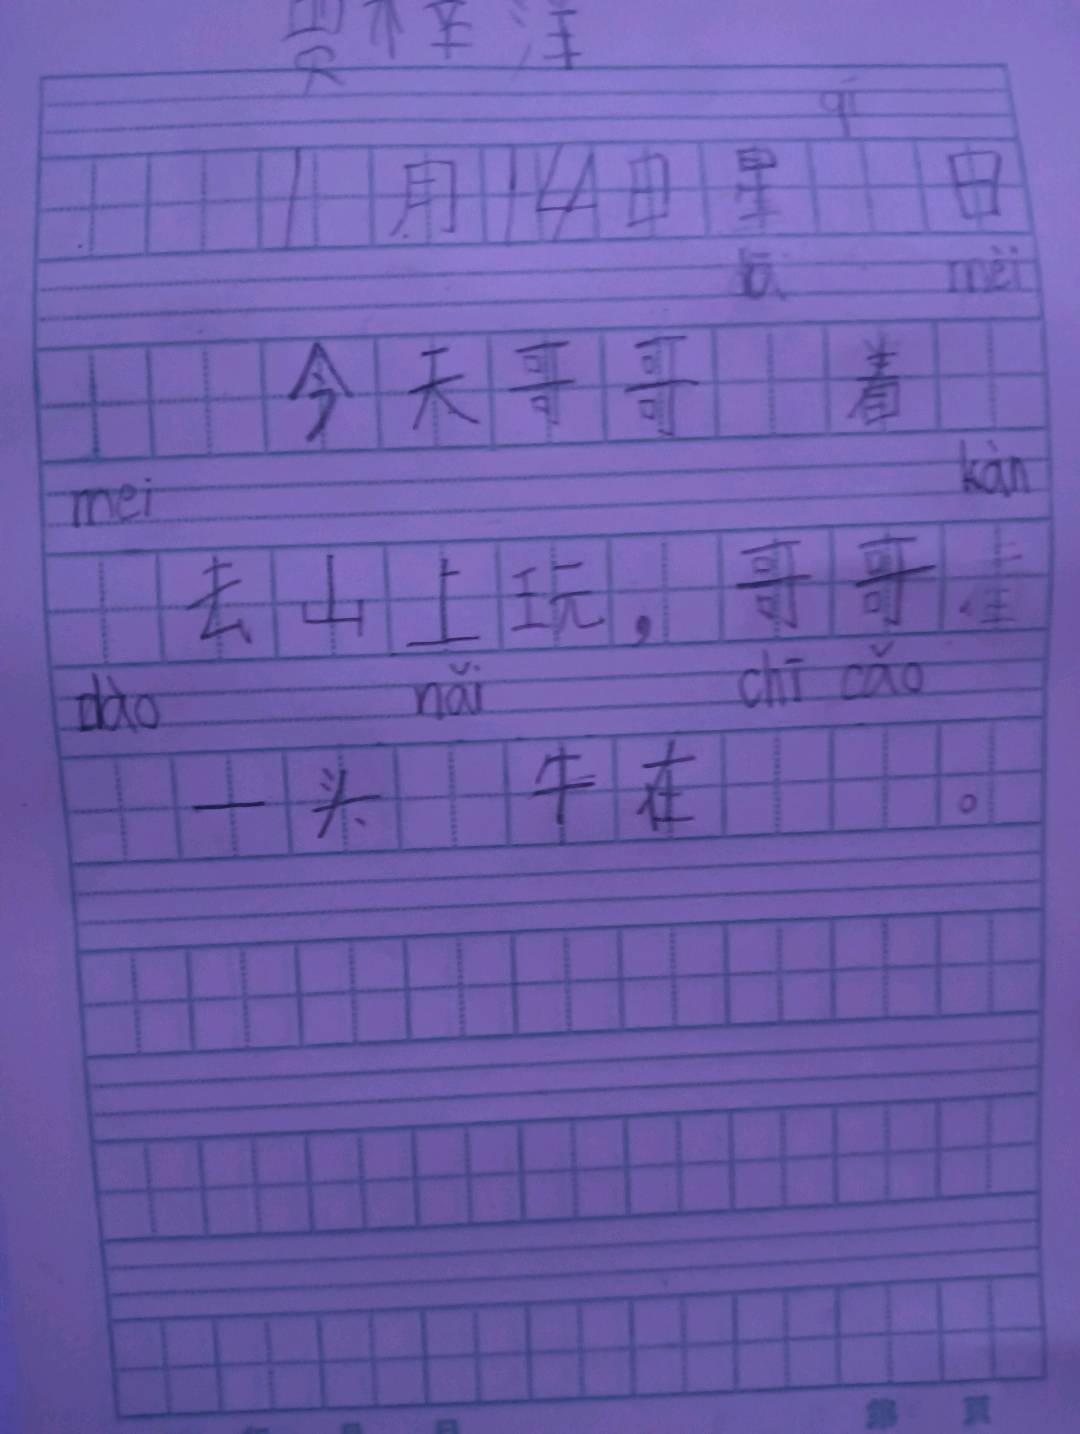 qī
1月14日星 日
mèi
今天哥哥 着
mei kàn
去山上玩，哥哥
dào nǎi chī cǎo
一头 牛在 。
第 页